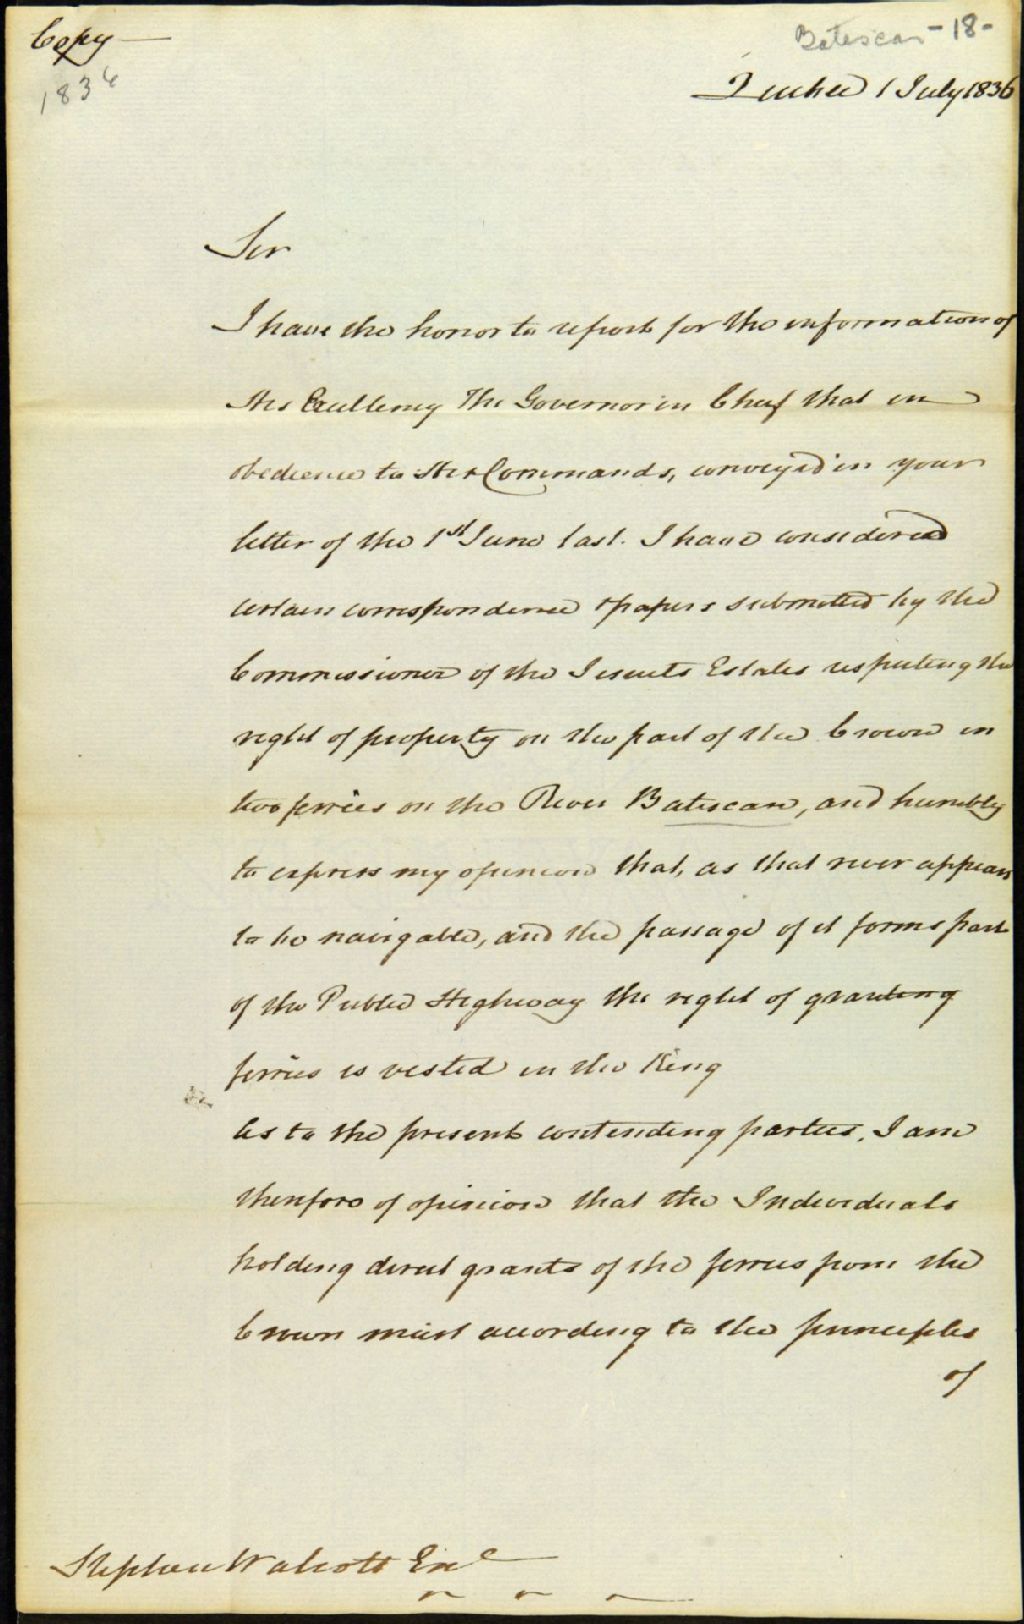 Copy
1836
Batiscan - 18 -
Quebec 1 July 1836
Sir
I have the honor to report for the information of
His Excellency The Governor in Chief that in
obedience to His Commands, conveyed in your
letter of the 1st June last. I have considered
certain correspondence & papers submitted by the
Commissioner of the Jesuits Estates respecting the
right of property on the part of the Crown in
two ferries on the River Batiscan, and humbly
to express my opinion that, as that river appears
to be navigable, and the passage of it forms part
of the Public Highway the right of granting
ferries is vested in the King
As to the present contending parties, I am
therefore of opinion that the Individuals
holding direct grants of the ferries from the
Crown must according to the principles
of
Stephen Walcott Esqe